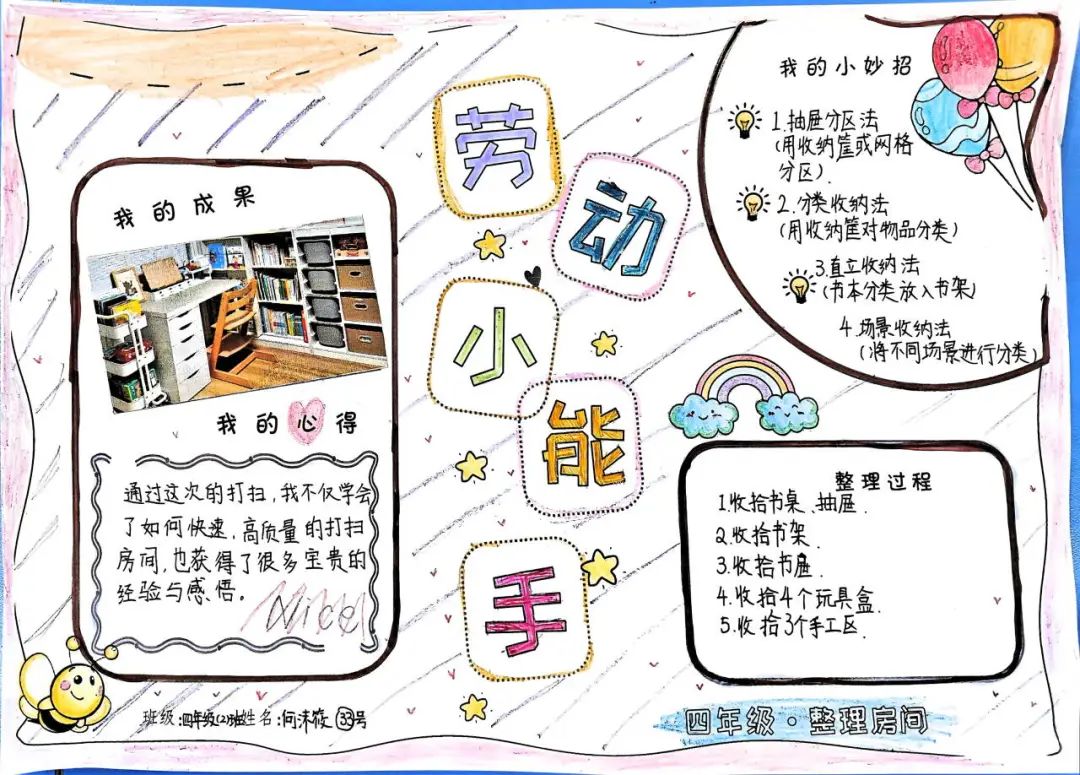 劳动小能手
我的成果
我的心得
通过这次的打扫，我不仅学会
了如何快速，高质量的打扫
房间，也获得了很多宝贵的
经验与感悟。
Nice!
我的小妙招
1.抽屉分区法
(用收纳筐或网格
分区).
2.分类收纳法
(用收纳筐对物品分类)
3.直立收纳法
(书本分类放入书架)
4.场景收纳法
(将不同场景进行分类)
整理过程
1.收拾书桌、抽屉.
2.收拾书架.
3.收拾书屉.
4.收拾4个玩具盒.
5.收拾3个手工区.
班级:四年级(2)班姓名:何沐筱 33号
四年级·整理房间